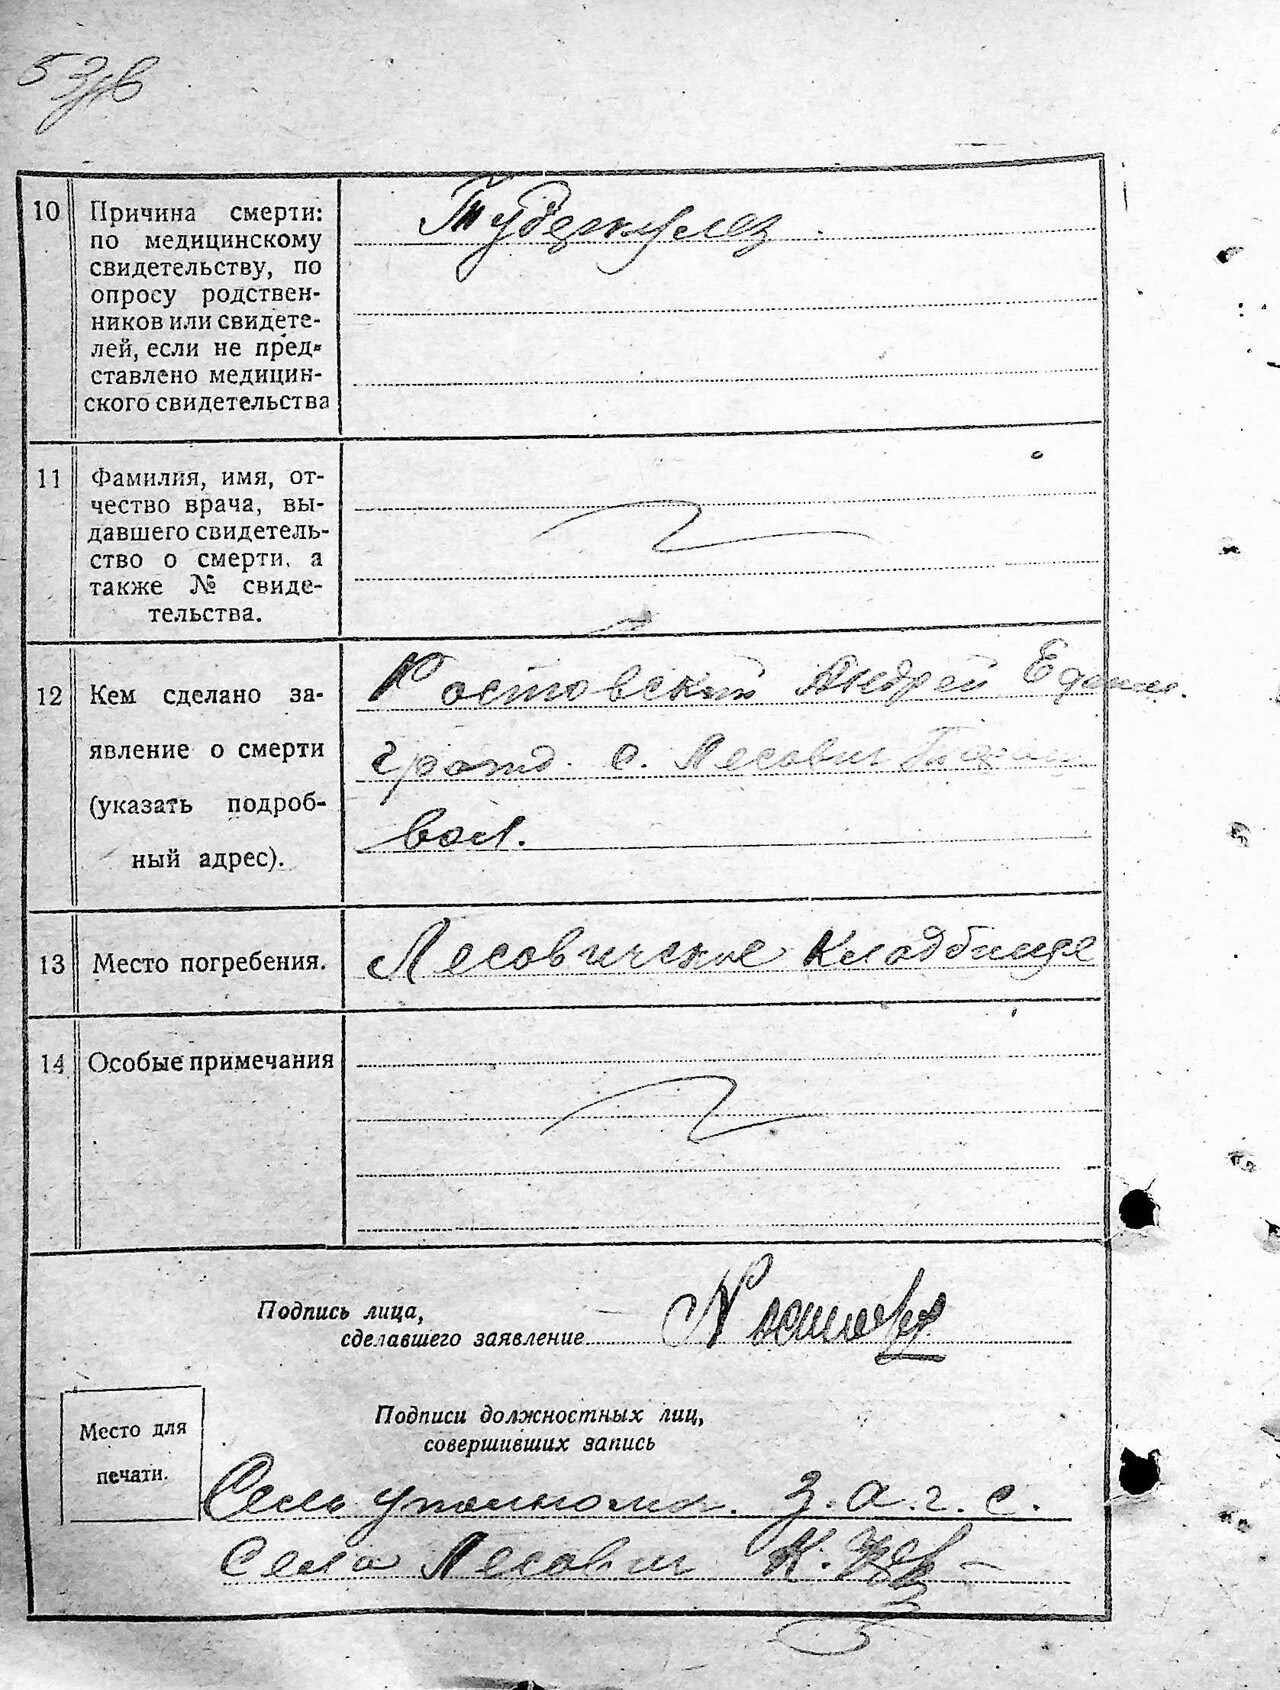 10 Причина смерти:
по медицинскому
свидетельству, по
опросу родствен-
ников или свидете-
лей, если не пред-
ставлено медицин-
ского свидетельства
Туберкулез
11 Фамилия, имя, от-
чество врача, вы-
давшего свидетель-
ство о смерти, а
также № свиде-
тельства.
12 Кем сделано за-
явление о смерти
(указать подроб-
ный адрес).
Костовский Андрей
гражд. с. Лесович
вол.
13 Место погребения.
Лесовичское кладбище
14 Особые примечания
Подпись лица,
сделавшего заявление
Подписи должностных лиц,
совершивших запись
Место для
печати.
Сель уполном. з.а.г.с.
Села Лесович К.